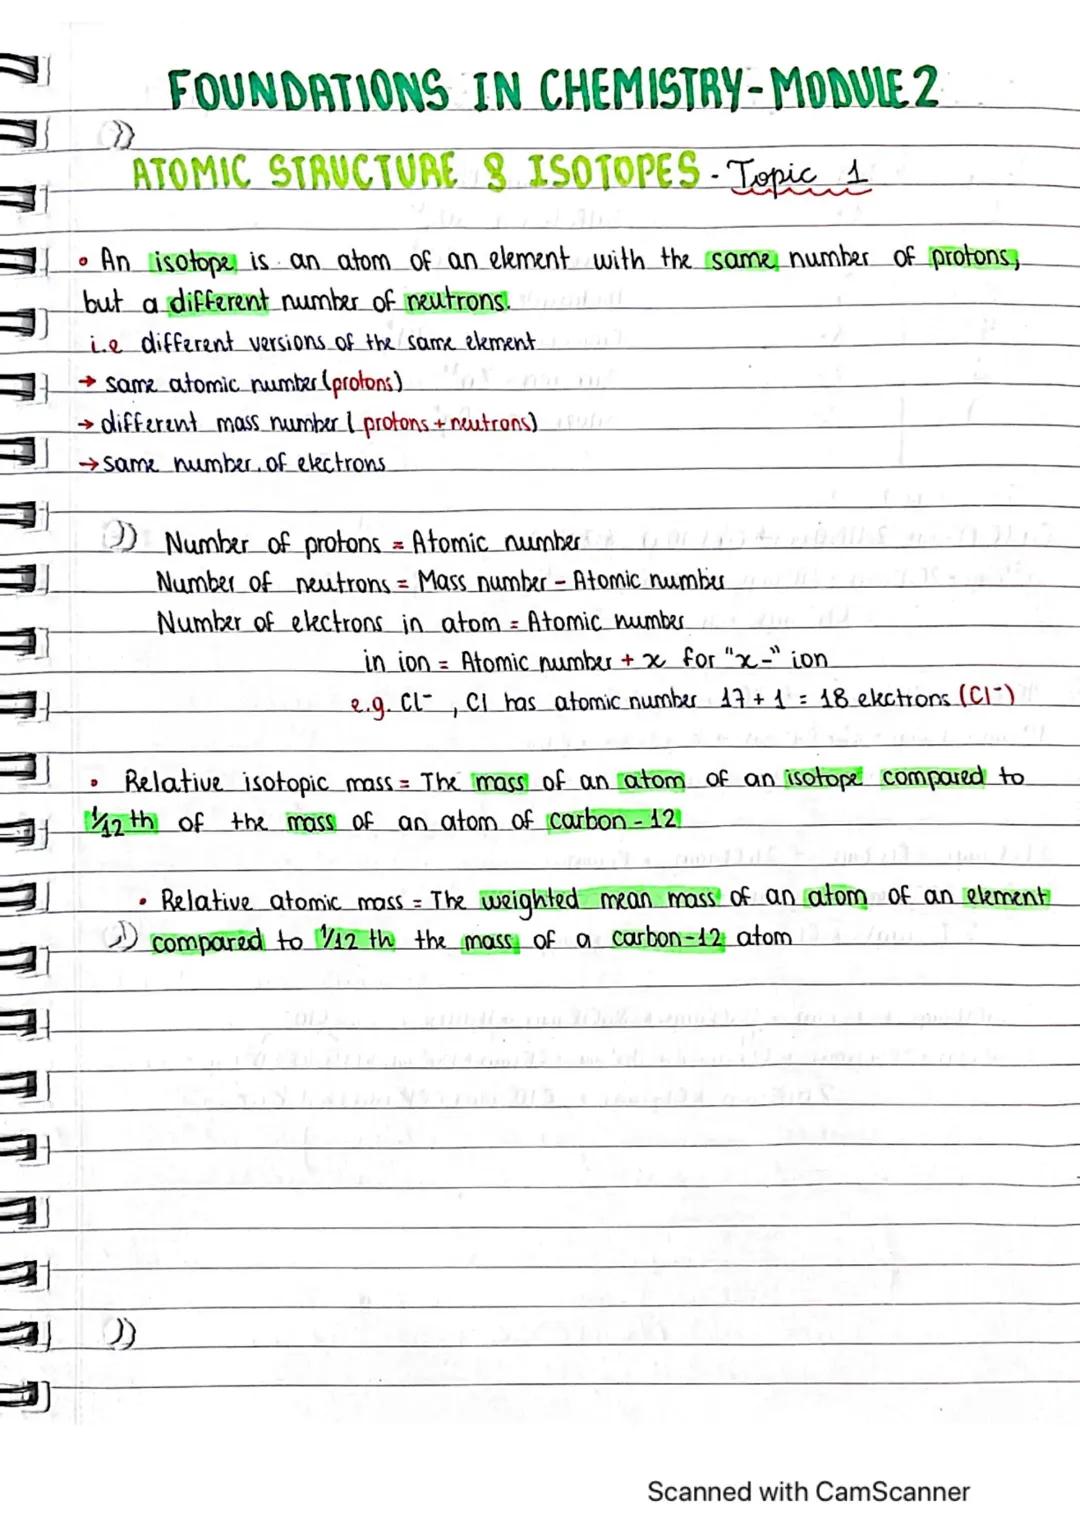 FOUNDATIONS IN CHEMISTRY-MODULE 2
ATOMIC STRUCTURE & ISOTOPES - Topic 1
• An isotope is an atom of an element with the same number of protons,
but a different number of neutrons.
i.e different versions of the same element
→ same atomic number (protons)
→ different mass number (protons + neutrons)
→ same number of electrons
Number of protons = Atomic number
Number of neutrons = Mass number - Atomic number
Number of electrons in atom = Atomic number
in ion = Atomic number + x for "x-" ion
e.g. Cl⁻, Cl has atomic number 17 + 1 = 18 electrons (Cl⁻)
• Relative isotopic mass = The mass of an atom of an isotope compared to
1/12 th of the mass of an atom of carbon - 12
• Relative atomic mass = The weighted mean mass of an atom of an element
compared to 1/12 th the mass of a carbon-12 atom
Scanned with CamScanner